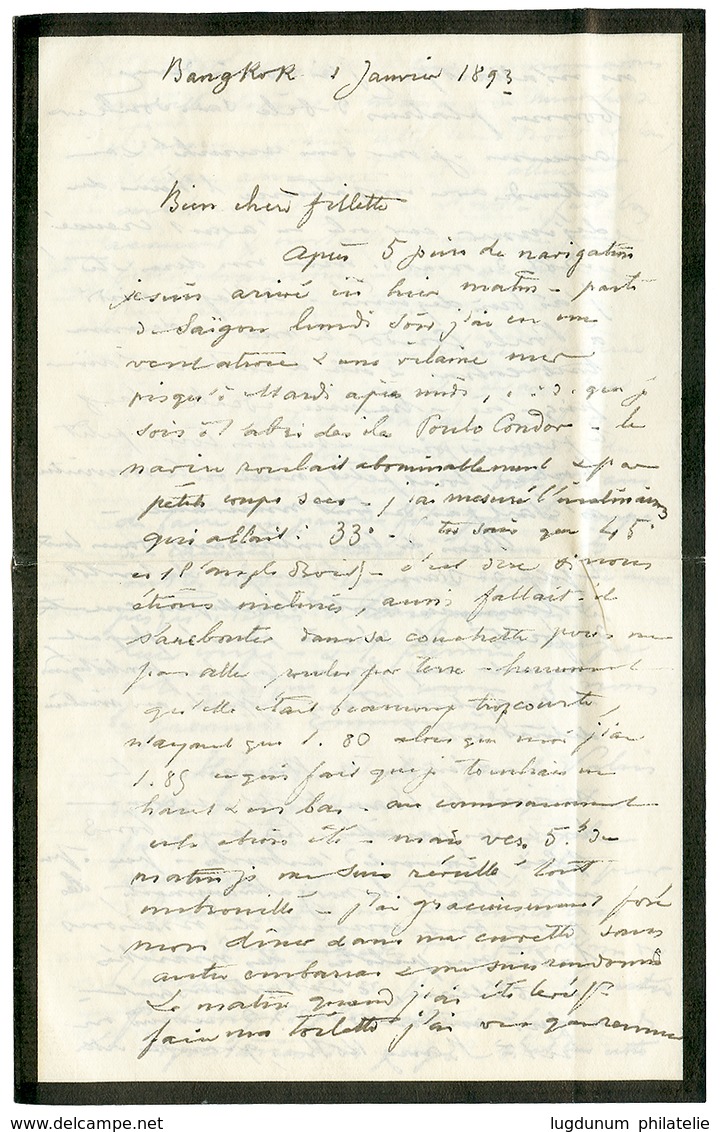 Bangkok 1 Janvier 1893
Bien chère fillette
Après 5 jours de navigation
je suis arrivé ici hier matin - parti
de Saïgon lundi soir j'ai eu un
vent atroce & une vilaine mer
jusqu'à Mardi après midi, c. à d. que je
sois à l'abri des ile Poulo Condor - le
navire roulait abominablement & par
petits coups secs - j'ai mesuré l'inclinaison
qui allait à 33° - tu sais que 45°
est l'angle droit - c'est dire si nous
étions inclinés, aussi fallait-il
s'arcbouter dans sa couchette pour ne
pas aller rouler par terre - heureusement
qu'elle était beaucoup trop courte,
n'ayant que 1.80 alors que moi j'ai
1.85 ce qui fait que je touchais en
haut & en bas - au commencement
cela alors été - mais vers 5.h du
matin je me suis réveillé tout
embrouillé - j'ai gracieusement posé
mon diner dans ma cuvette sans
autre embarras & me suis rendormi
Le matin quand j'ai été levé &
faire ma toilette j'ai vu que
lugdunum philatelie